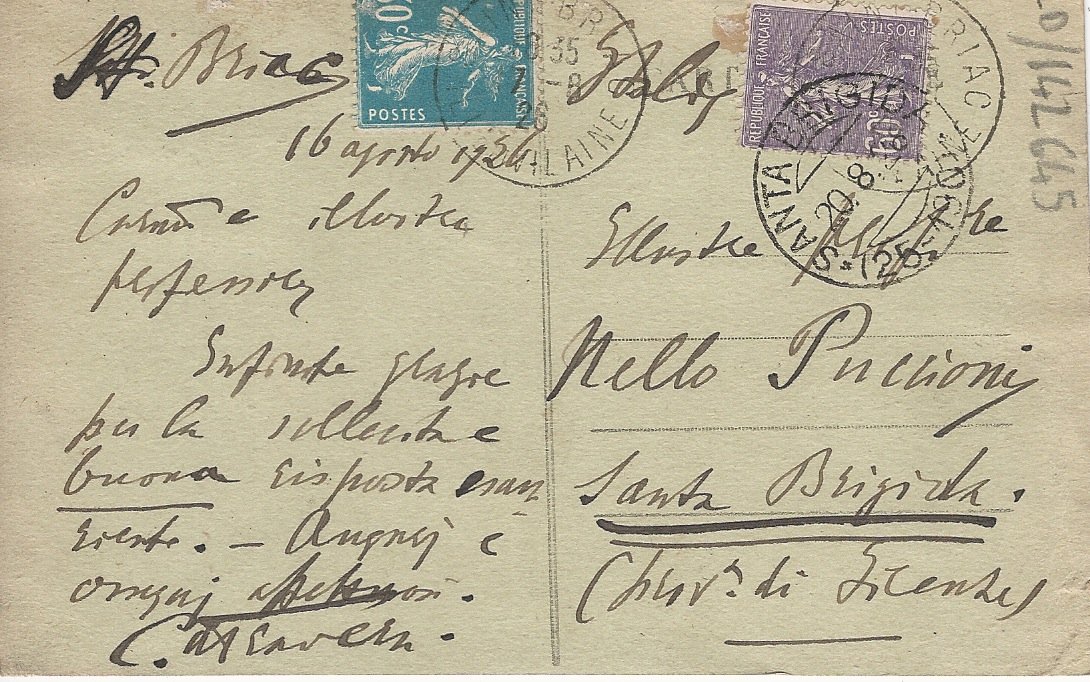 St. Briac
16 agosto 1926
Caro e illustre
professore
Infinite grazie
per la sollecita e
buona risposta esau
riente. — Auguri e
omaggi affettuosi.
C.
Italy
CAR
Illustre
Nello Puccioni
Santa Brigida.
(Prov. di Firenze)
POSTES
REPUBLIQUE FRANÇAISE
POSTES
REPUBLIQUE FRANÇAISE
60c
BRIAC
VILAINE
35
26
SANTA BRIGIDA
20.8
0/142 645